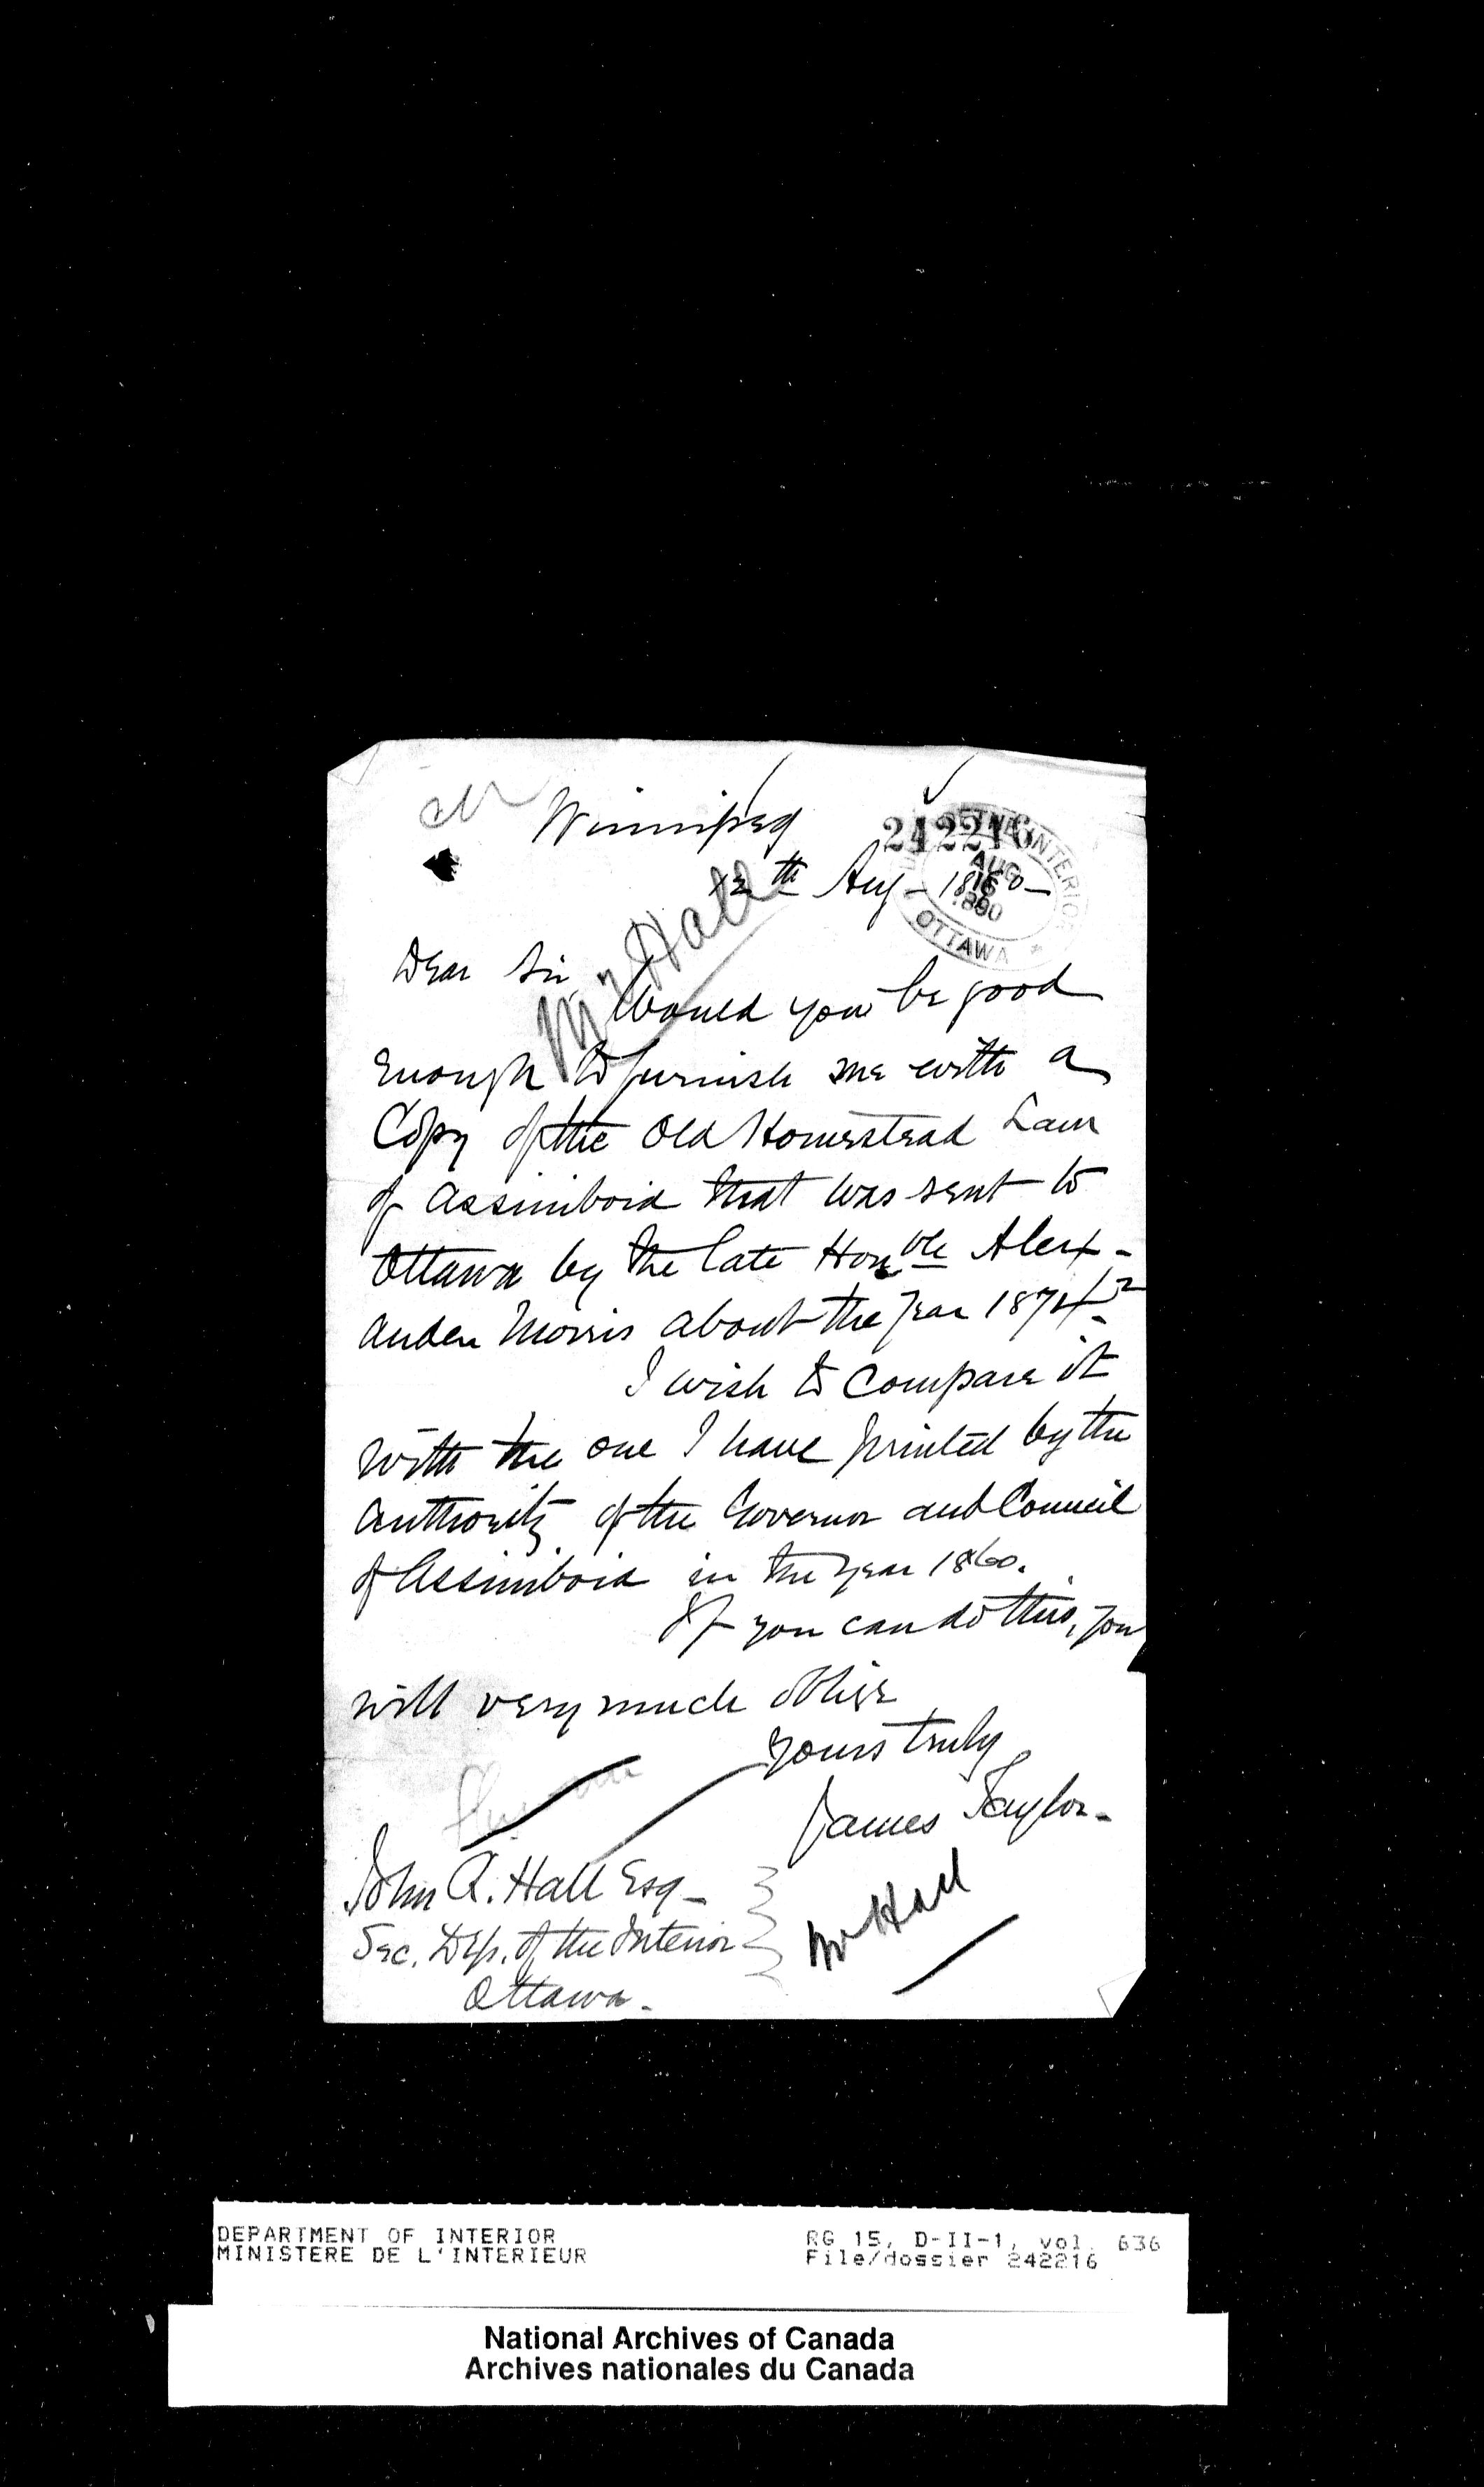 Winnipeg
242216
12th Aug - 1890 -
DEPT. OF THE INTERIOR
AUG
16
1890
OTTAWA
Mr Hall
Dear Sir,
Would you be good
enough to furnish me with a
Copy of the Old Homestead Law
of Assiniboia that was sent to
Ottawa by the late Honble Alex-
ander Morris about the year 1874?
I wish to compare it
with the one I have printed by the
authority of the Governor and Council
of Assiniboia in the year 1860.
If you can do this, you
will very much oblige
yours truly
James Taylor-
John R. Hall Esq-
Sec. Dep. of the Interior
Ottawa.
Mr Hall
DEPARTMENT OF INTERIOR RG 15, D-II-1, vol. 636
MINISTERE DE L'INTERIEUR File/dossier 242216
National Archives of Canada
Archives nationales du Canada